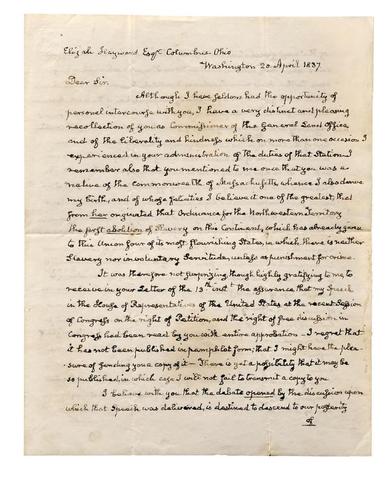 Elijah Hayward Esqr. Columbus. Ohio
Washington 20 April 1837
Dear Sir.
Although I have seldom had the opportunity of
personal intercourse with you, I have a very distinct and pleasing
recollection of you as Commissioner of the General Land Office,
and of the liberality and kindness which on more than one occasion I
experienced in your administration of the duties of that Station. I
remember also that you mentioned to me once that you was a
native of the Commonwealth of Massachusetts whence I also derive
my birth, and of whose felicities I believe it one of the greatest, that
from her originated that Ordinance for the Northwestern Territory
the first abolition of Slavery on this Continent, which has already given
to this Union four of its most flourishing States, in which there is neither
Slavery nor involuntary Servitude, unless as punishment for crime.
It was therefore not surprizing though highly gratifying to me, to
receive in your Letter of the 13th inst. the assurance that my Speech
in the House of Representatives of the United States at the recent Session
of Congress on the right of Petition, and the right of free discussion in
Congress had been read by you with entire approbation — I regret that
it has not been published in pamphlet form, that I might have the plea-
sure of sending you a copy of it — There is yet a possibility that it may be
so published, in which case I will not fail to transmit a copy to you
I believe with you that the debate opened by the discussion upon
which that Speech was delivered, is destined to descend to our posterity
of